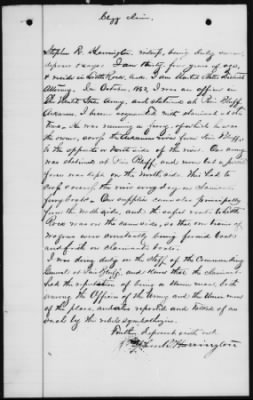 Clegg Claim.
Stephen R. Harrington, being duly sworn
deposes & says: I am thirty five years of age,
& reside in Little Rock, Ark. I am United States District
Attorney. In October, 1863, I was an officer in
the United States Army, and stationed at Pine Bluff
Arkansas. I became acquainted with claimant at that
time. He was running a ferry, of which he was
the owner, across the Arkansas river from Pine Bluff,
to the opposite or North side of the river. Our army
was stationed at Pine Bluff and only but a picket
force was kept on the north side. This had to
cross & recross the river every day on claimant's
ferry boats. Our supplies came also principally
from the north side, and the safest road to Little
Rock was on the same side, so that our trains of
wagons were constantly being ferried back
and forth on claimant's boats.
I was doing duty on the staff of the Commanding
General at Pine Bluff, and know that the claimant
had the reputation of being a Union man, both
among the Officers of the Army and the Union men
of the place, and was reported and hated as
such by the rebels sympathizers.
Further deponent saith not.
Stephen R. Harrington